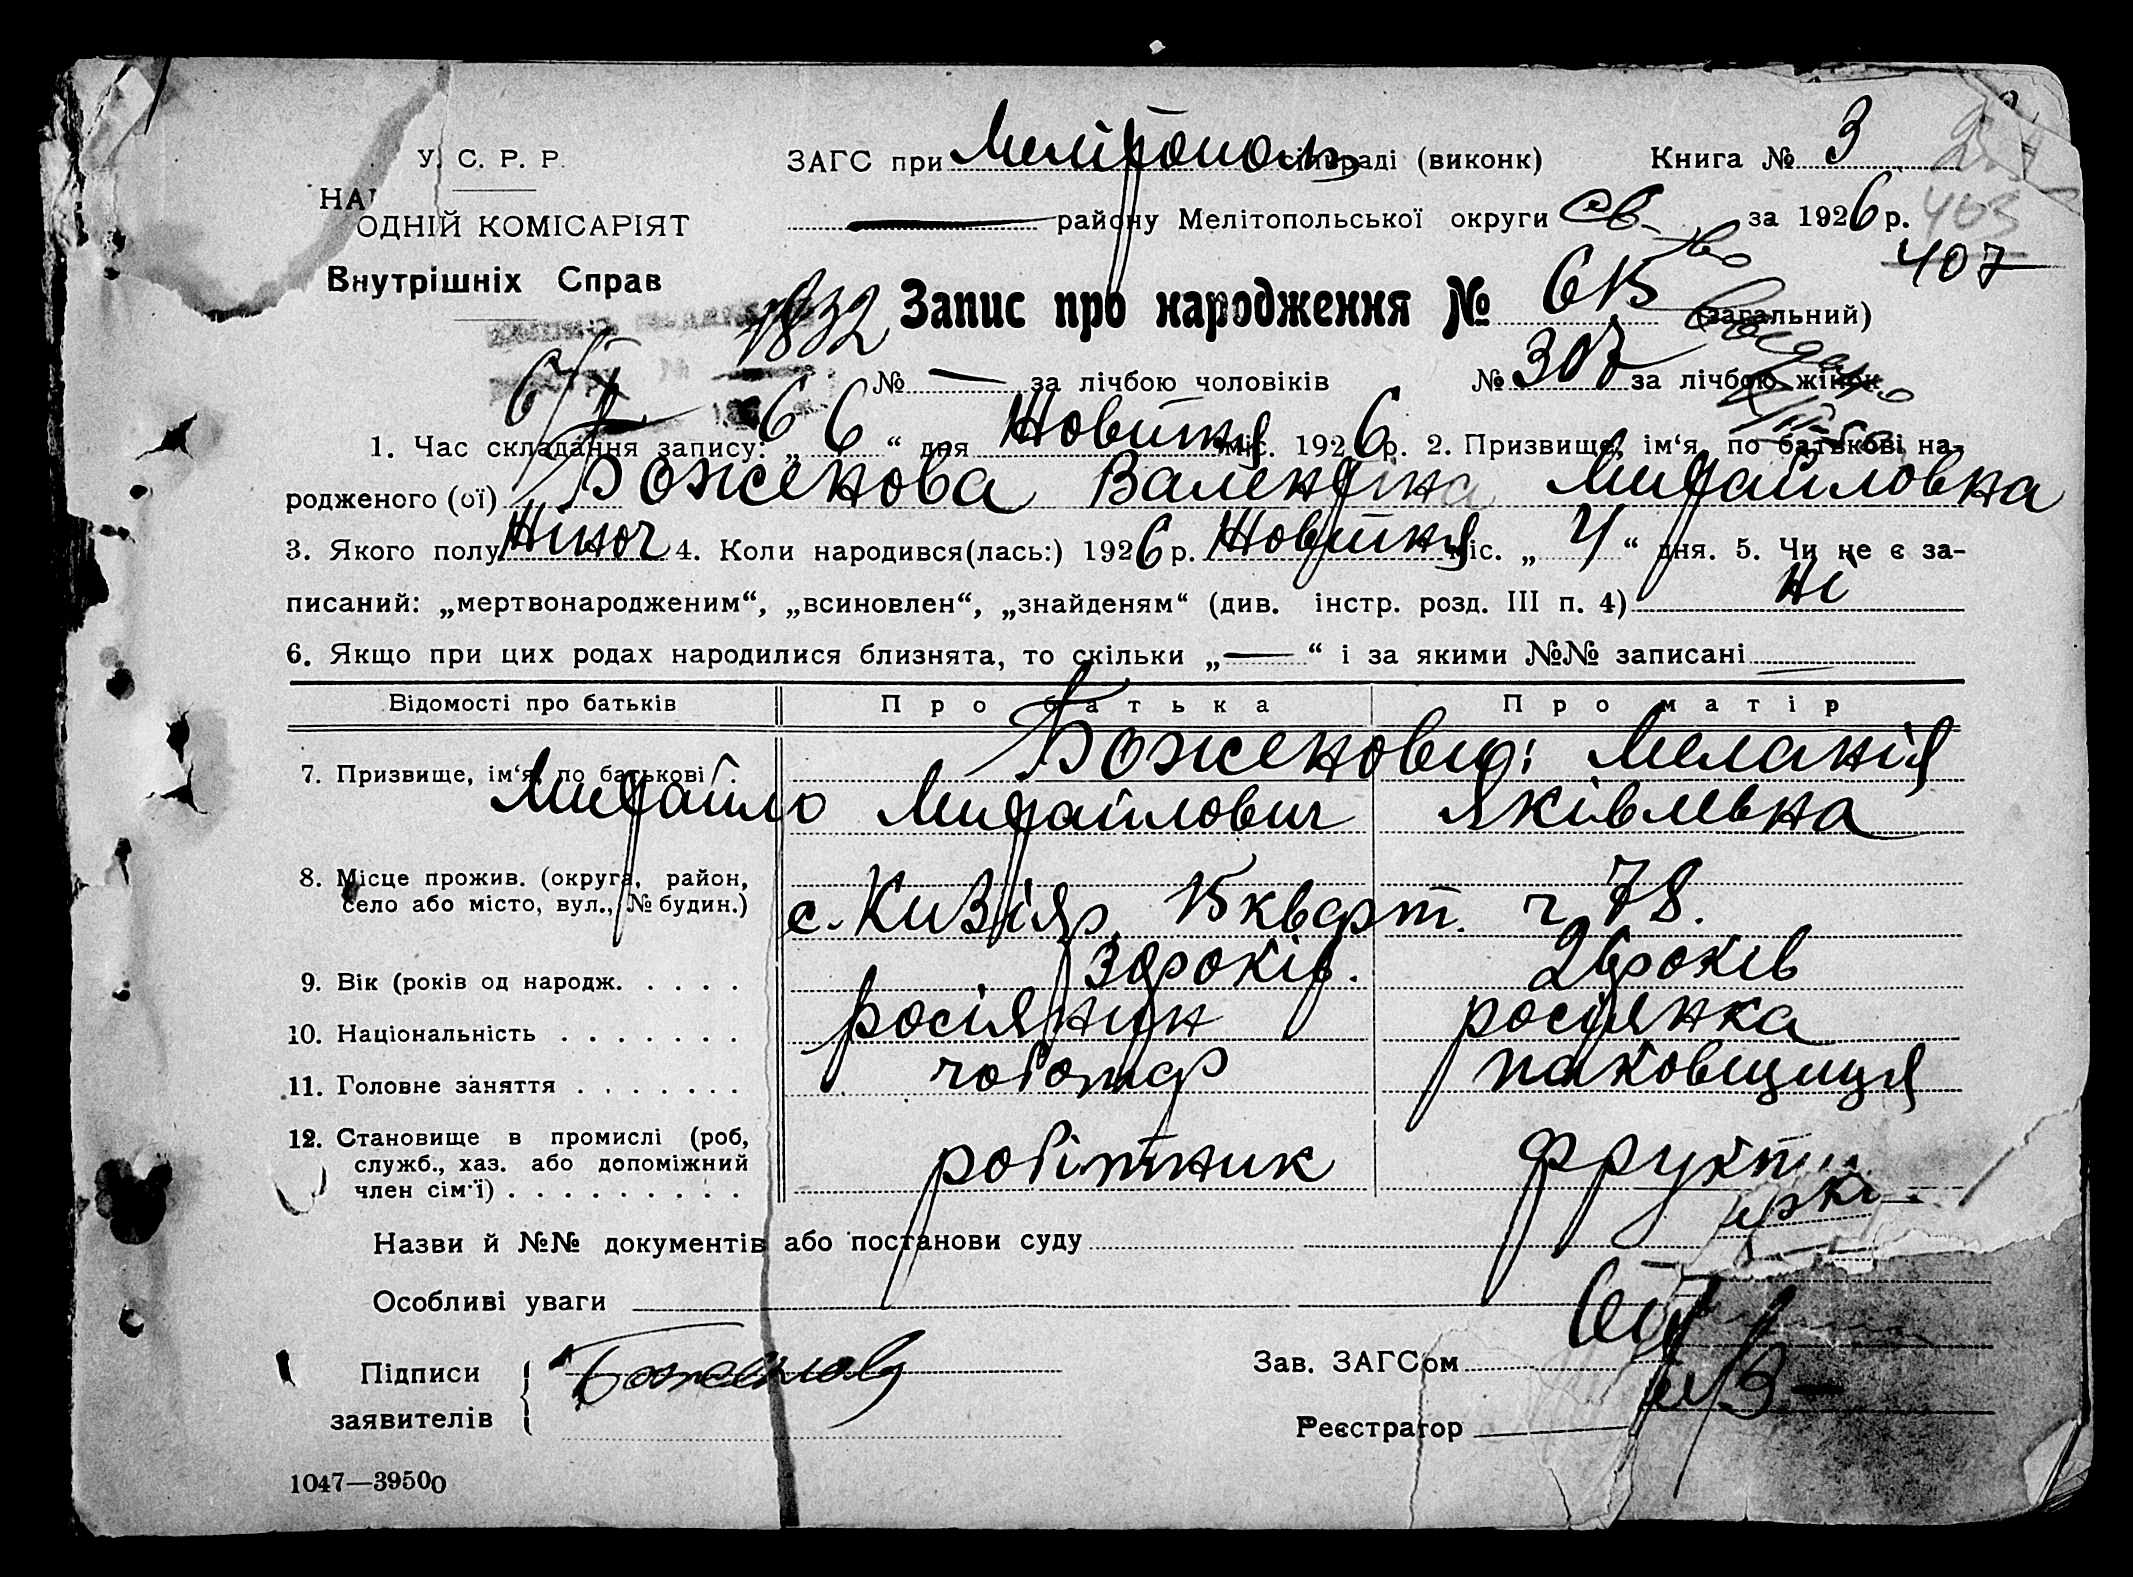 У. С. Р. Р.
ЗАГС при Мелітополь міськраді (виконк) Книга № 3
НА ОДНІЙ КОМІСАРІЯТ
району Мелітопольської округи за 1926 р. 403
Внутрішніх Справ
407
1832 Запис про народження № 615 (загальний)
№ — за лічбою чоловіків № 307 за лічбою жінок
1. Час складання запису: „ 6 “ дня Жовтня міс. 1926 р. 2. Призвище, ім‘я, по батькові на-
родженого (ої) Боженова Валентіна Михайловна
3. Якого полу Жіноч 4. Коли народився(лась:) 1926 р. Жовтня міс. „ 4 “ дня. 5. Чи не є за-
писаний: „мертвонародженим“, „всиновлен“, „знайденям“ (див. інстр. розд. III п. 4) Ні
6. Якщо при цих родах народилися близнята, то скільки „ — “ і за якими №№ записані —
Відомості про батьків Про батька Про матір
7. Призвище, ім‘я, по батькові Боженови: Меланія
Михайло Михайлович Яківлевна
8. Місце прожив. (округа, район,
село або місто, вул., № будин.) с. Кизіяр 15 кварт. ч. 78.
9. Вік (років од народж. 30 років. 26 років
10. Національність росіянин росіянка
11. Головне заняття чоботар паковщиця
12. Становище в промислі (роб,
служб., хаз. або допоміжний
член сім‘ї) робітник фрукт
Назви й №№ документів або постанови суду
Особливі уваги
Підписи Боженов Зав. ЗАГСом
заявителів Реєстратор
1047—39500